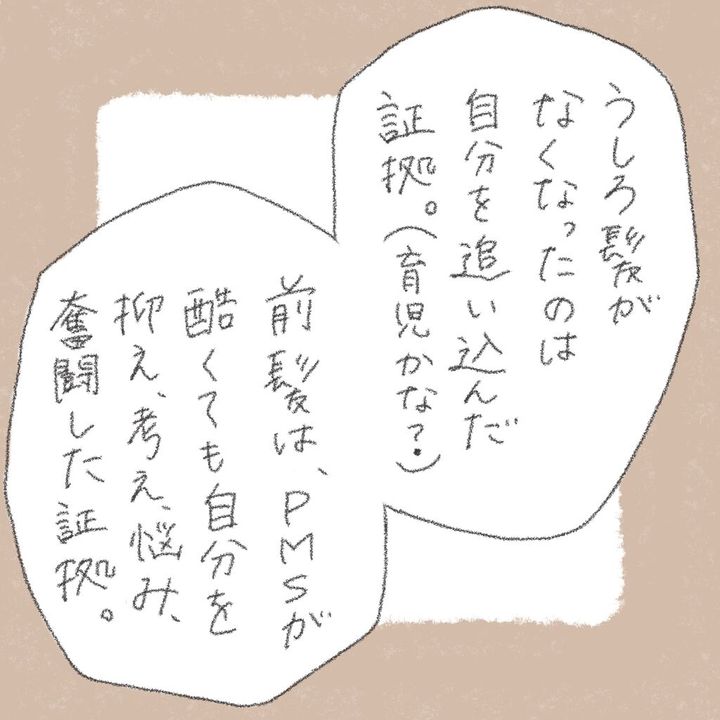 うしろ髪が
なくなったのは
自分を追い込んだ
証拠。(育児かな?)
前髪は、PMSが
酷くても自分を
抑え、考え、悩み、
奮闘した証拠。